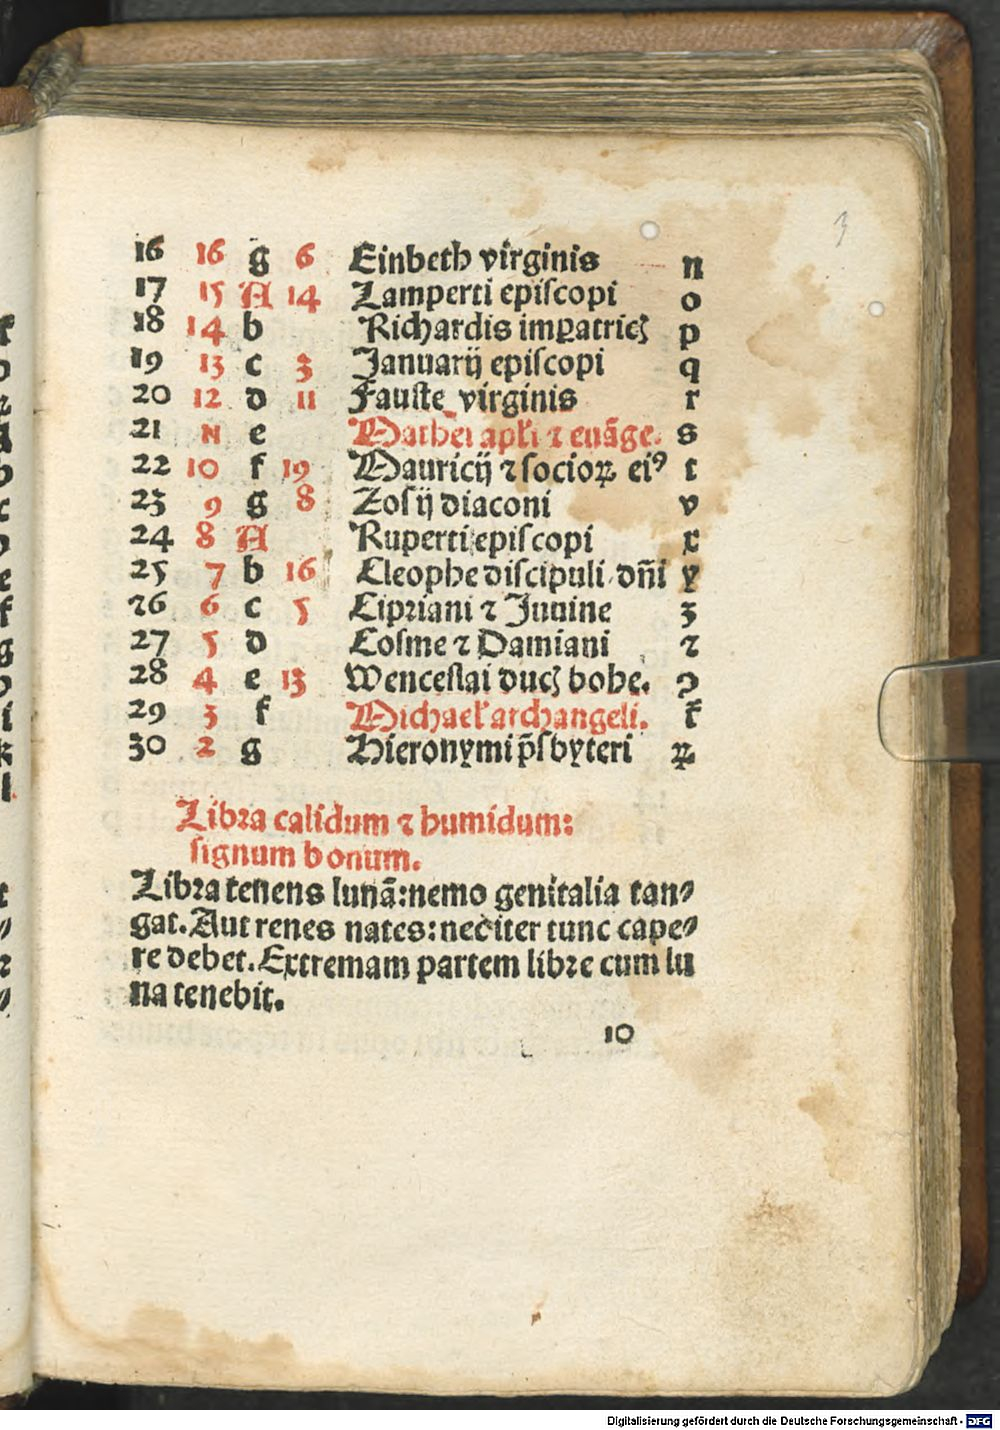 3
16 16 g 6 Einbeth virginis n
17 15 A 14 Lamperti episcopi o
18 14 b Richardis imꝑatricꝫ p
19 13 c 3 Januarij episcopi q
20 12 d 11 Fauste virginis r
21 N e Mathei apłi ⁊ euãge. s
22 10 f 19 Mauricij ⁊ socioꝝ eiꝰ t
23 9 g 8 Zosij diaconi v
24 8 A Ruperti episcopi x
25 7 b 16 Cleophe discipuli dñi y
26 6 c 5 Cipriani ⁊ Juuine z
27 5 d Cosme ⁊ Damiani ⁊
28 4 e 13 Wenceslai ducꝫ bohe. ꝯ
29 3 f Michael' archangeli.
30 2 g Hieronymi p̄sbyteri ꝝ
Libra calidum ⁊ humidum:
signum bonum.
Libra tenens lunã: nemo genitalia tan⸗
gat. Aut renes nates: neciter tunc cape⸗
re debet. Extremam partem libre cum lu
na tenebit.
10
Digitalisierung gefördert durch die Deutsche Forschungsgemeinschaft - DFG